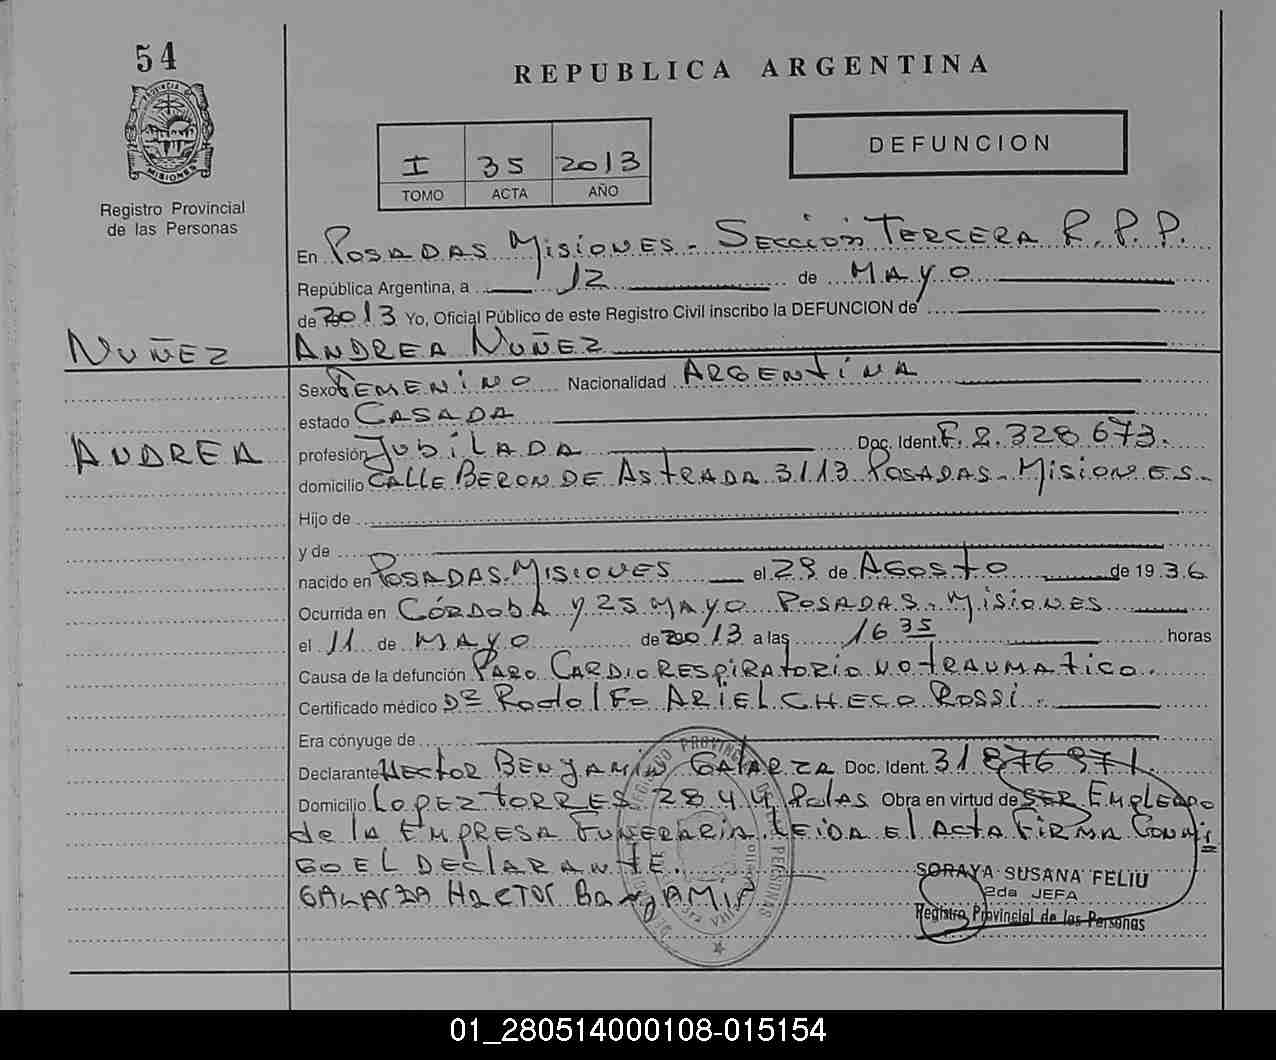 54
PROVINCIA DE
MISIONES
Registro Provincial
de las Personas
REPUBLICA ARGENTINA
I 35 2013
TOMO ACTA AÑO
DEFUNCION
En POSADAS MISIONES - SECCIÓN TERCERA R.P.P.
República Argentina, a 12 de MAYO
de 2013 Yo, Oficial Público de este Registro Civil inscribo la DEFUNCION de
NUÑEZ
ANDREA NUÑEZ
Sexo FEMENINO Nacionalidad ARGENTINA
estado CASADA
ANDREA
profesión JUBILADA Doc. Ident. F. 2.328.673.
domicilio CALLE BERON DE ASTRADA 3113 POSADAS - MISIONES.-
Hijo de
y de
nacido en POSADAS.MISIONES el 29 de AGOSTO de 1936
Ocurrida en CÓRDOBA Y 25 MAYO POSADAS.- MISIONES
el 11 de MAYO de 2013 a las 16 35 horas
Causa de la defunción PARO CARDIO RESPIRATORIO NO TRAUMATICO.
Certificado médico DR RODOLFO ARIEL CHECO ROSSI.
Era cónyuge de
Declarante HECTOR BENJAMIN GALARZA Doc. Ident. 31876971.
Domicilio LOPEZ TORRES 2844 Pdas Obra en virtud de SER EMPLEADO
de la EMPRESA FUNERARIA. LEIDA EL ACTA FIRMA CONMI
GO EL DECLARANTE.
GALARZA HECTOR BENJAMIN
SORAYA SUSANA FELIU
2da JEFA
Registro Provincial de las Personas
01_280514000108-015154